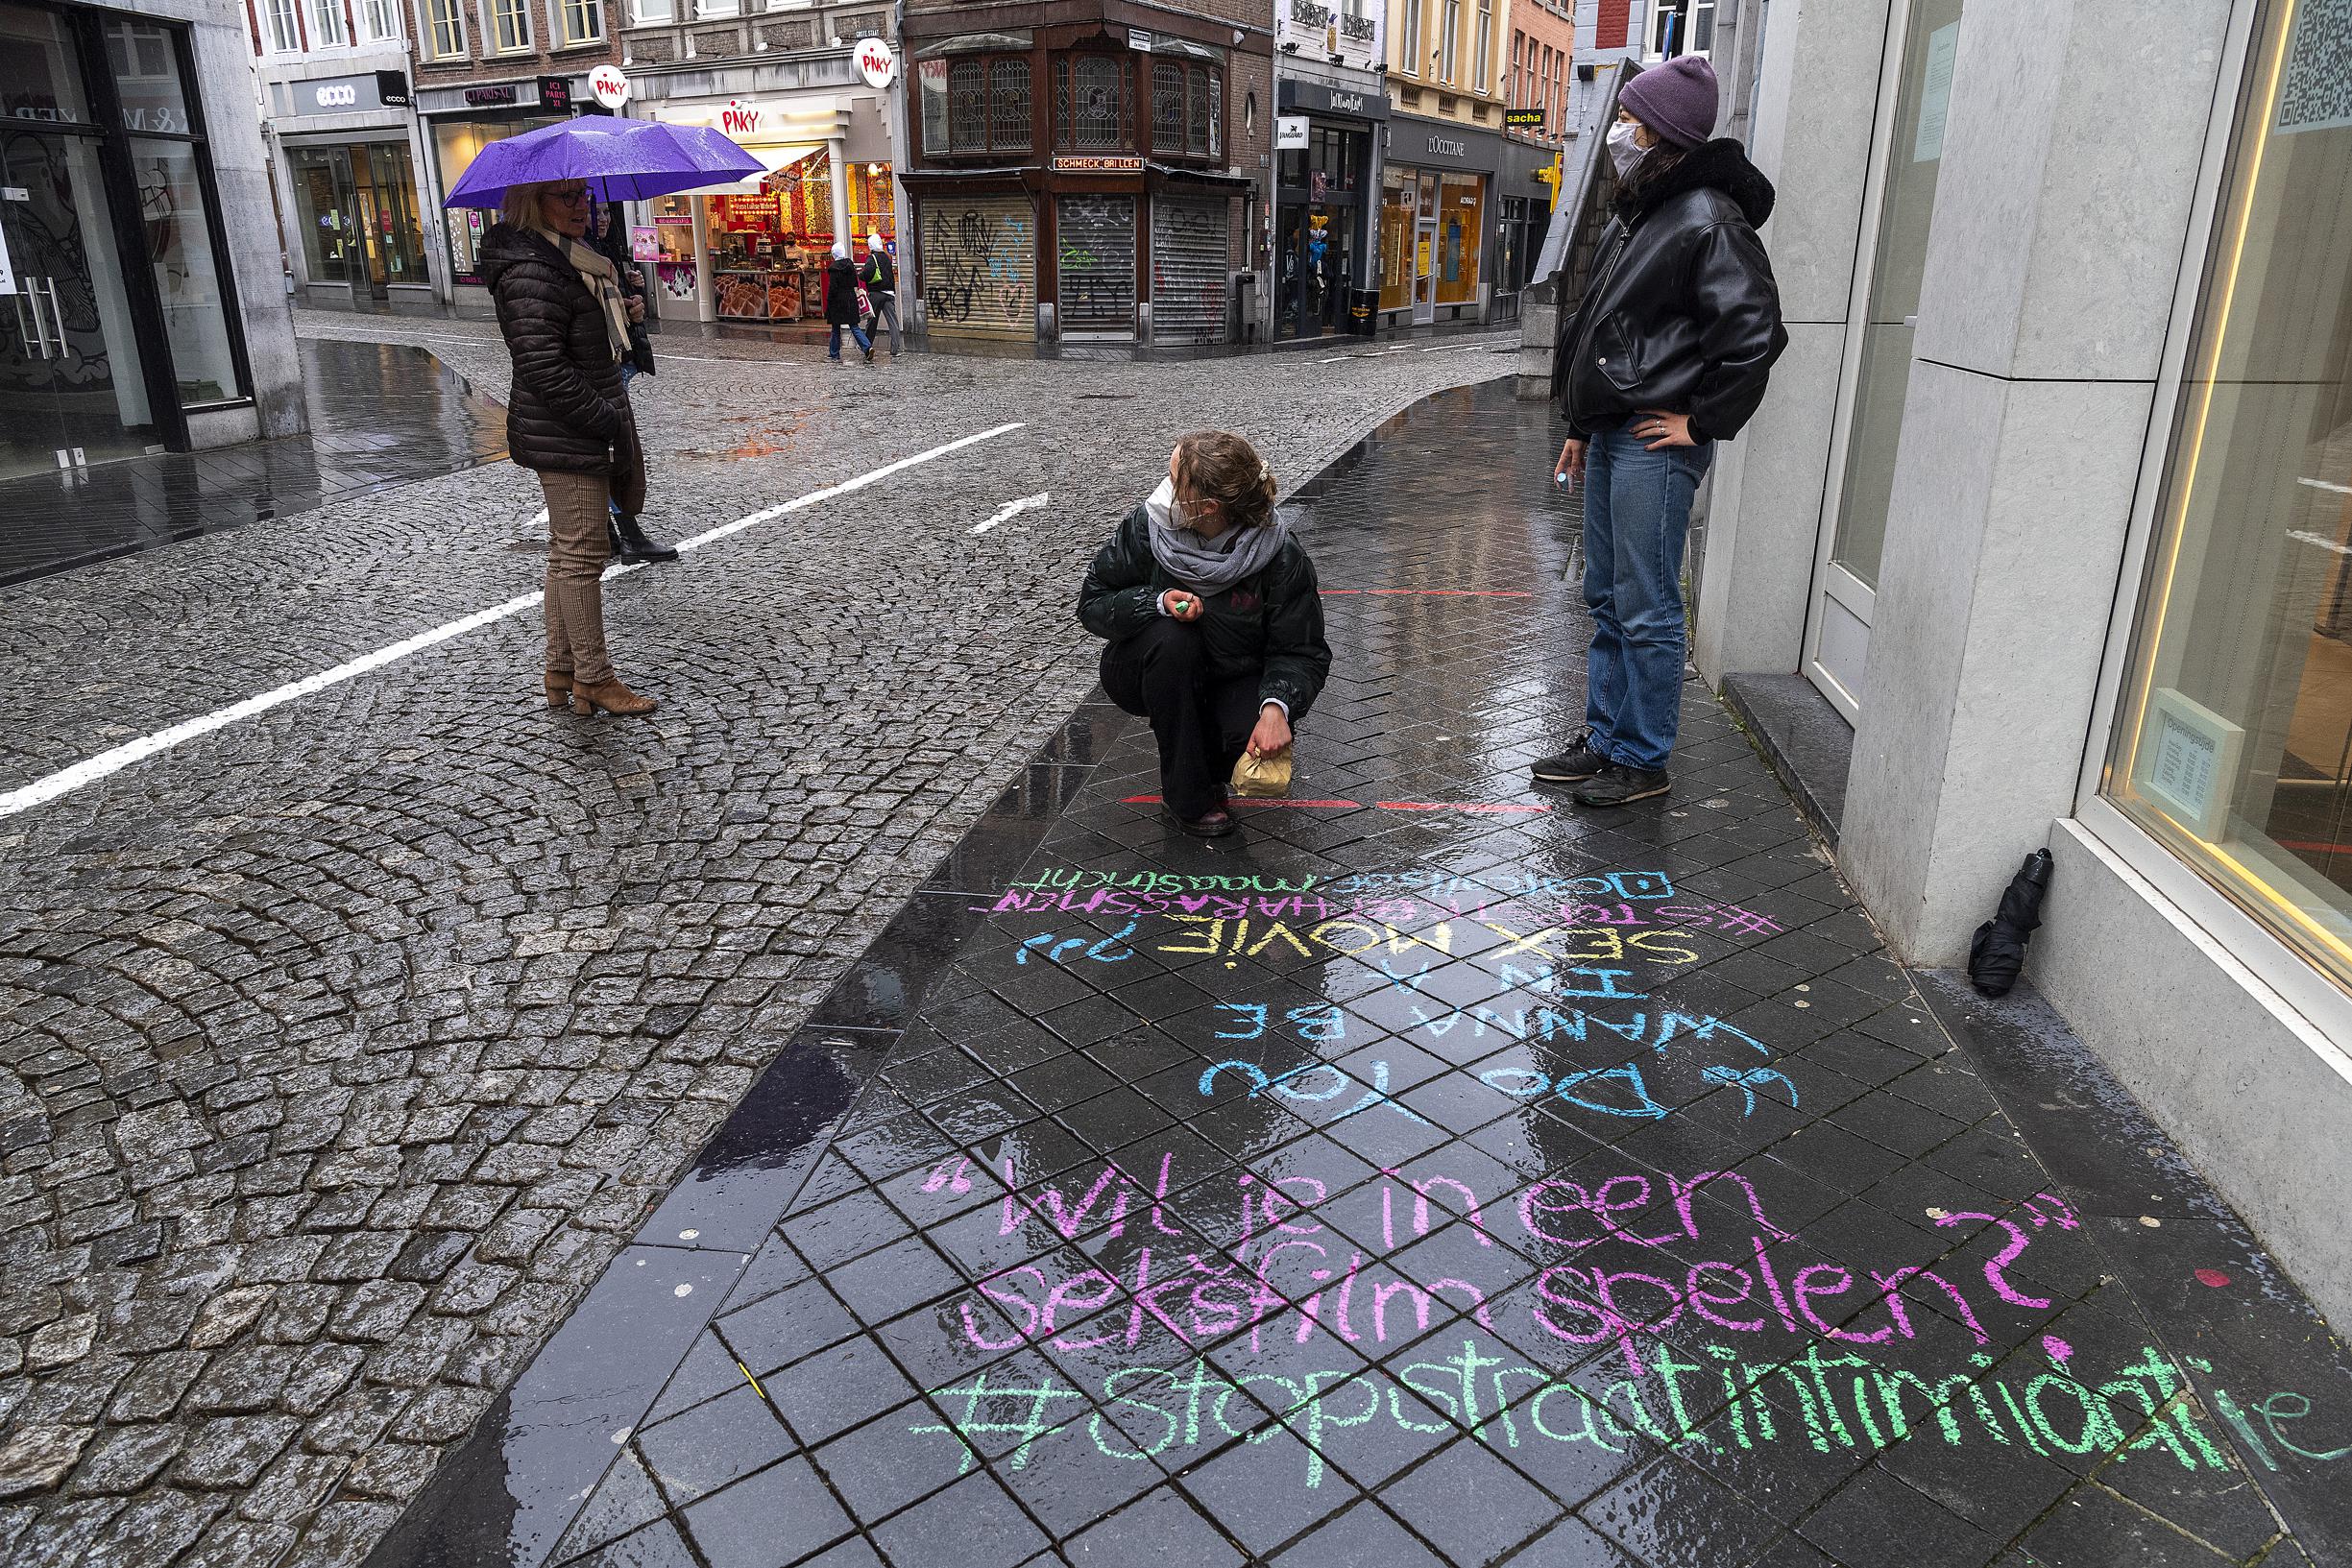 ecco
ecco
ICI PARIS XL
ICI
PARIS
XL
PiNKY
PiNKY
PiNKY
GROTE STAAT
SCHMECK BRILLEN
JACK & JONES
VANGUARD
L'OCCITANE
sacha
Openingstijden
"Wil je in een
seksfilm spelen?"
#stopstraatintimidatie
"DO YOU
WANNA BE
IN A
SEX MOVIE
?"
#STOPSTREETHARASSMENT
@catcallsofmaastricht